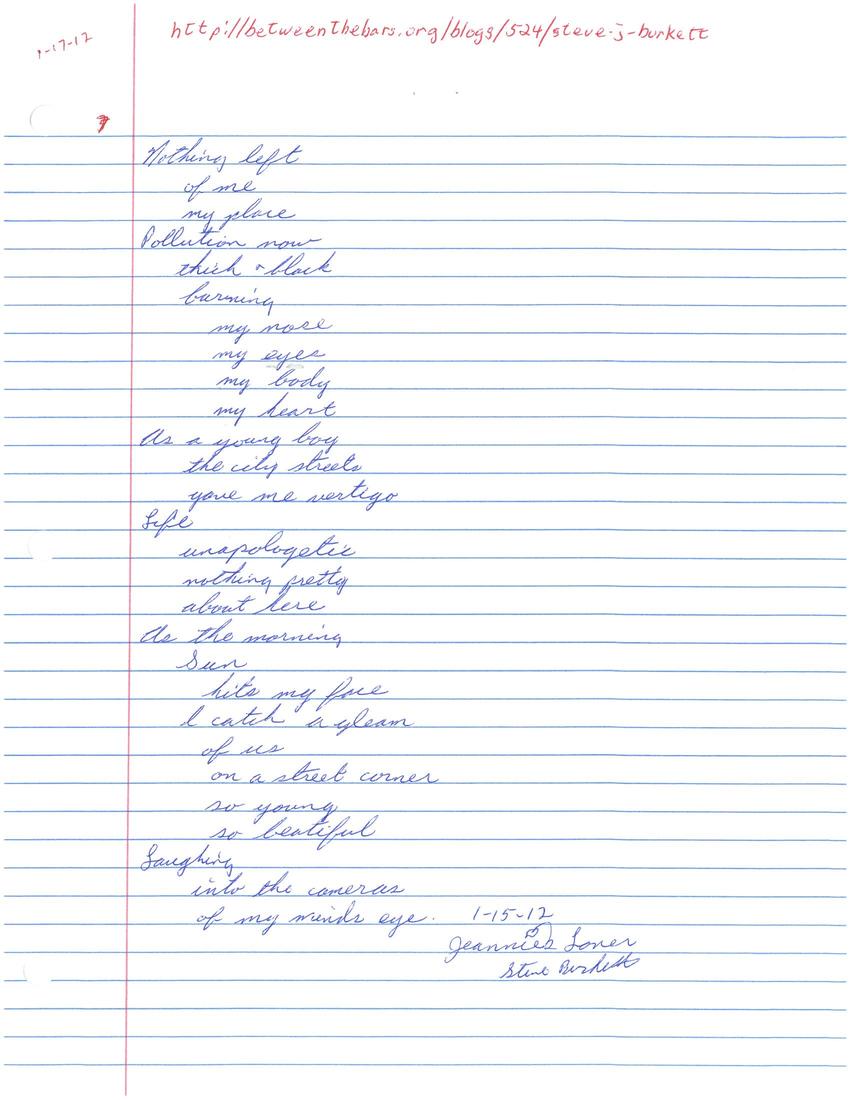 1-17-12
http://betweenthebars.org/blogs/524/steve-j-burkett
Nothing left
of me
my place
Pollution now
thick & black
burning
my nose
my eyes
my body
my heart
As a young boy
the city streets
gave me vertigo
Life
unapologetic
nothing pretty
about here
As the morning
Sun
hits my face
I catch a gleam
of us
on a street corner
so young
so beatiful
Laughing
into the cameras
of my minds eye.
1-15-12
Jeannies Loner
Steve Burkett